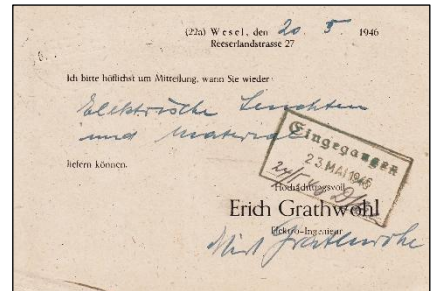 (22a) Wesel, den 20. 5. 1946
Reeserlandstrasse 27
Ich bitte höflichst um Mitteilung, wann Sie wieder
Elektrische Leuchten
und Material
liefern können.
Eingegangen
23. MAI 1946
24/5 46
Hochachtungsvoll
Erich Grathwohl
Elektro-Ingenieur
Grathwohl